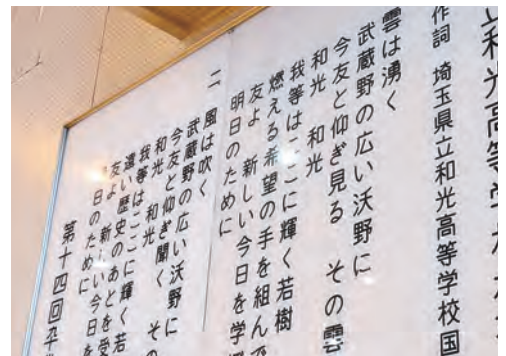 立和光高等学校校
作詞 埼玉県立和光高等学校国
雲は湧く
武蔵野の広い沃野に
今友と仰ぎ見る その雲
和光 和光
我等はここに輝く若樹
燃える希望の手を組んで
友よ 新しい今日を学
明日のために
二 風は吹く
武蔵野の広い沃野に
今友と仰ぎ聞く その
和光 和光
我等はここに輝く若
遠い歴史のあとを受
友よ 新しい今日を
明日のために
第十四回卒